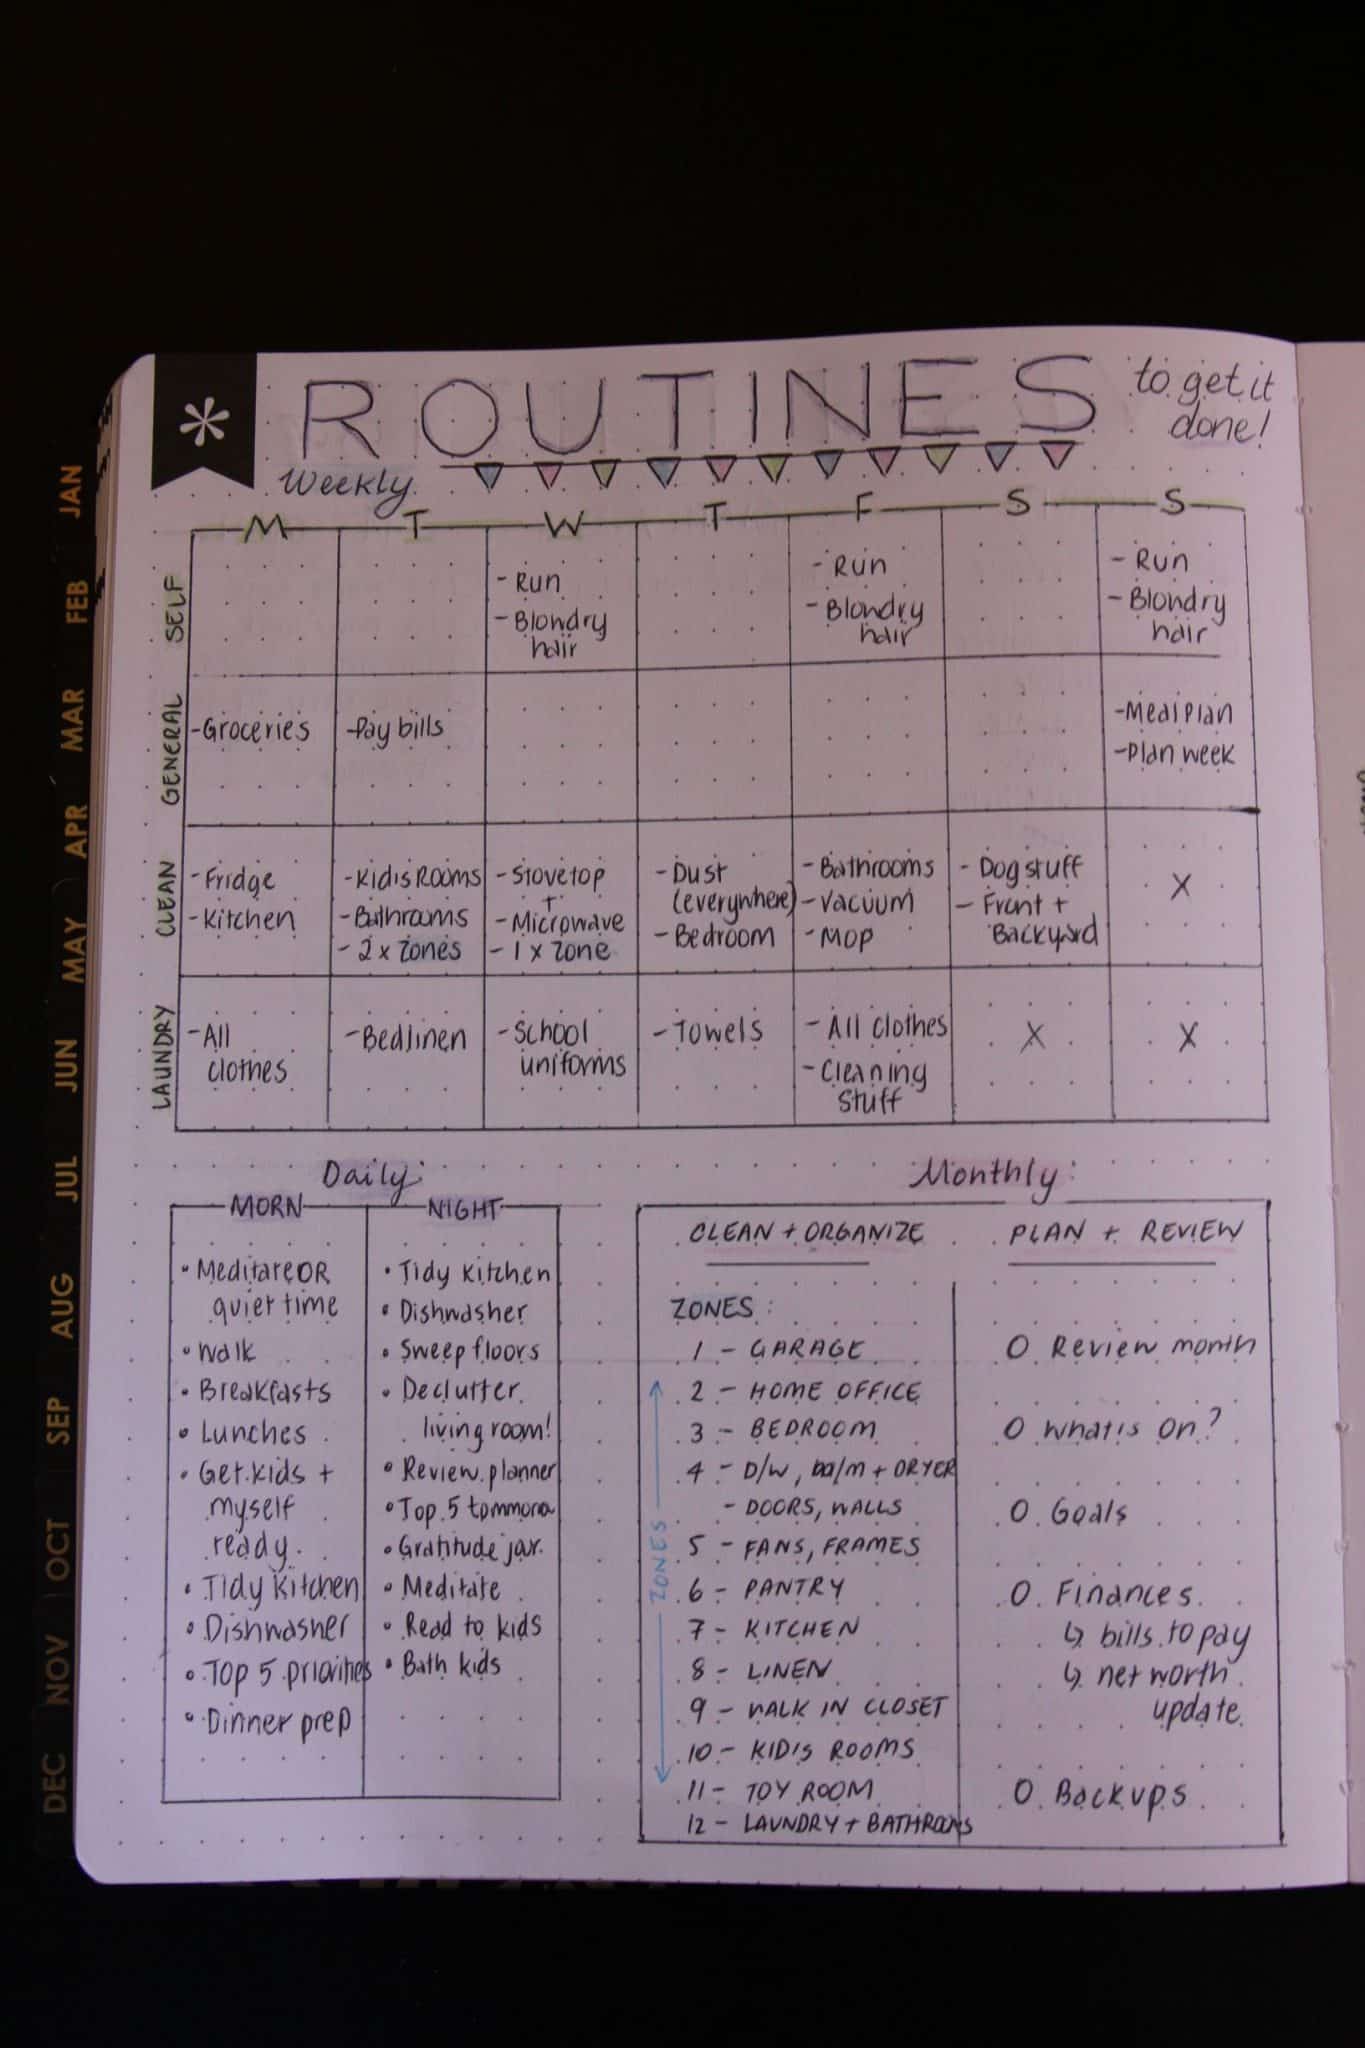 ROUTINES to get it done!
Weekly
M T W T F S S
SELF
- Run
- Blondry hair
- Run
- Blondry hair
- Run
- Blondry hair
GENERAL
- Groceries
- Pay bills
- Meal plan
- Plan week
CLEAN
- Fridge
- Kitchen
- Kidis Rooms
- Bathrooms
- 2 x Zones
- Stovetop
+
- Microwave
- 1 x Zone
- Dust
(everywhere)
- Bedroom
- Bathrooms
- Vacuum
- Mop
- Dog stuff
- Front +
Backyard
X
LAUNDRY
- All
clothes
- Bed linen
- School
uniforms
- Towels
- All clothes
- Cleaning
stuff
X
X
Daily:
MORN
• Meditate OR
quiet time
• Walk
• Breakfasts
• Lunches
• Get kids +
myself
ready
• Tidy kitchen
• Dishwasher
• Top 5 priorities
• Dinner prep
NIGHT
• Tidy kitchen
• Dishwasher
• Sweep floors
• Declutter
living room!
• Review planner
• Top 5
• Gratitude jar
• Meditate
• Read to kids
• Bath kids
Monthly:
CLEAN + ORGANIZE
ZONES:
1 - GARAGE
2 - HOME OFFICE
3 - BEDROOM
4 - D/W, /M + DRYER
- DOORS, WALLS
5 - FANS, FRAMES
6 - PANTRY
7 - KITCHEN
8 - LINEN
9 - WALK IN CLOSET
10 - KIDIS ROOMS
11 - TOY ROOM
12 - LAUNDRY + BATHROOMS
ZONES
PLAN + REVIEW
O Review month
O What is on?
O Goals
O Finances
↳ bills to pay
↳ net worth
update
O Backups
JAN
FEB
MAR
APR
MAY
JUN
JUL
AUG
SEP
OCT
NOV
DEC